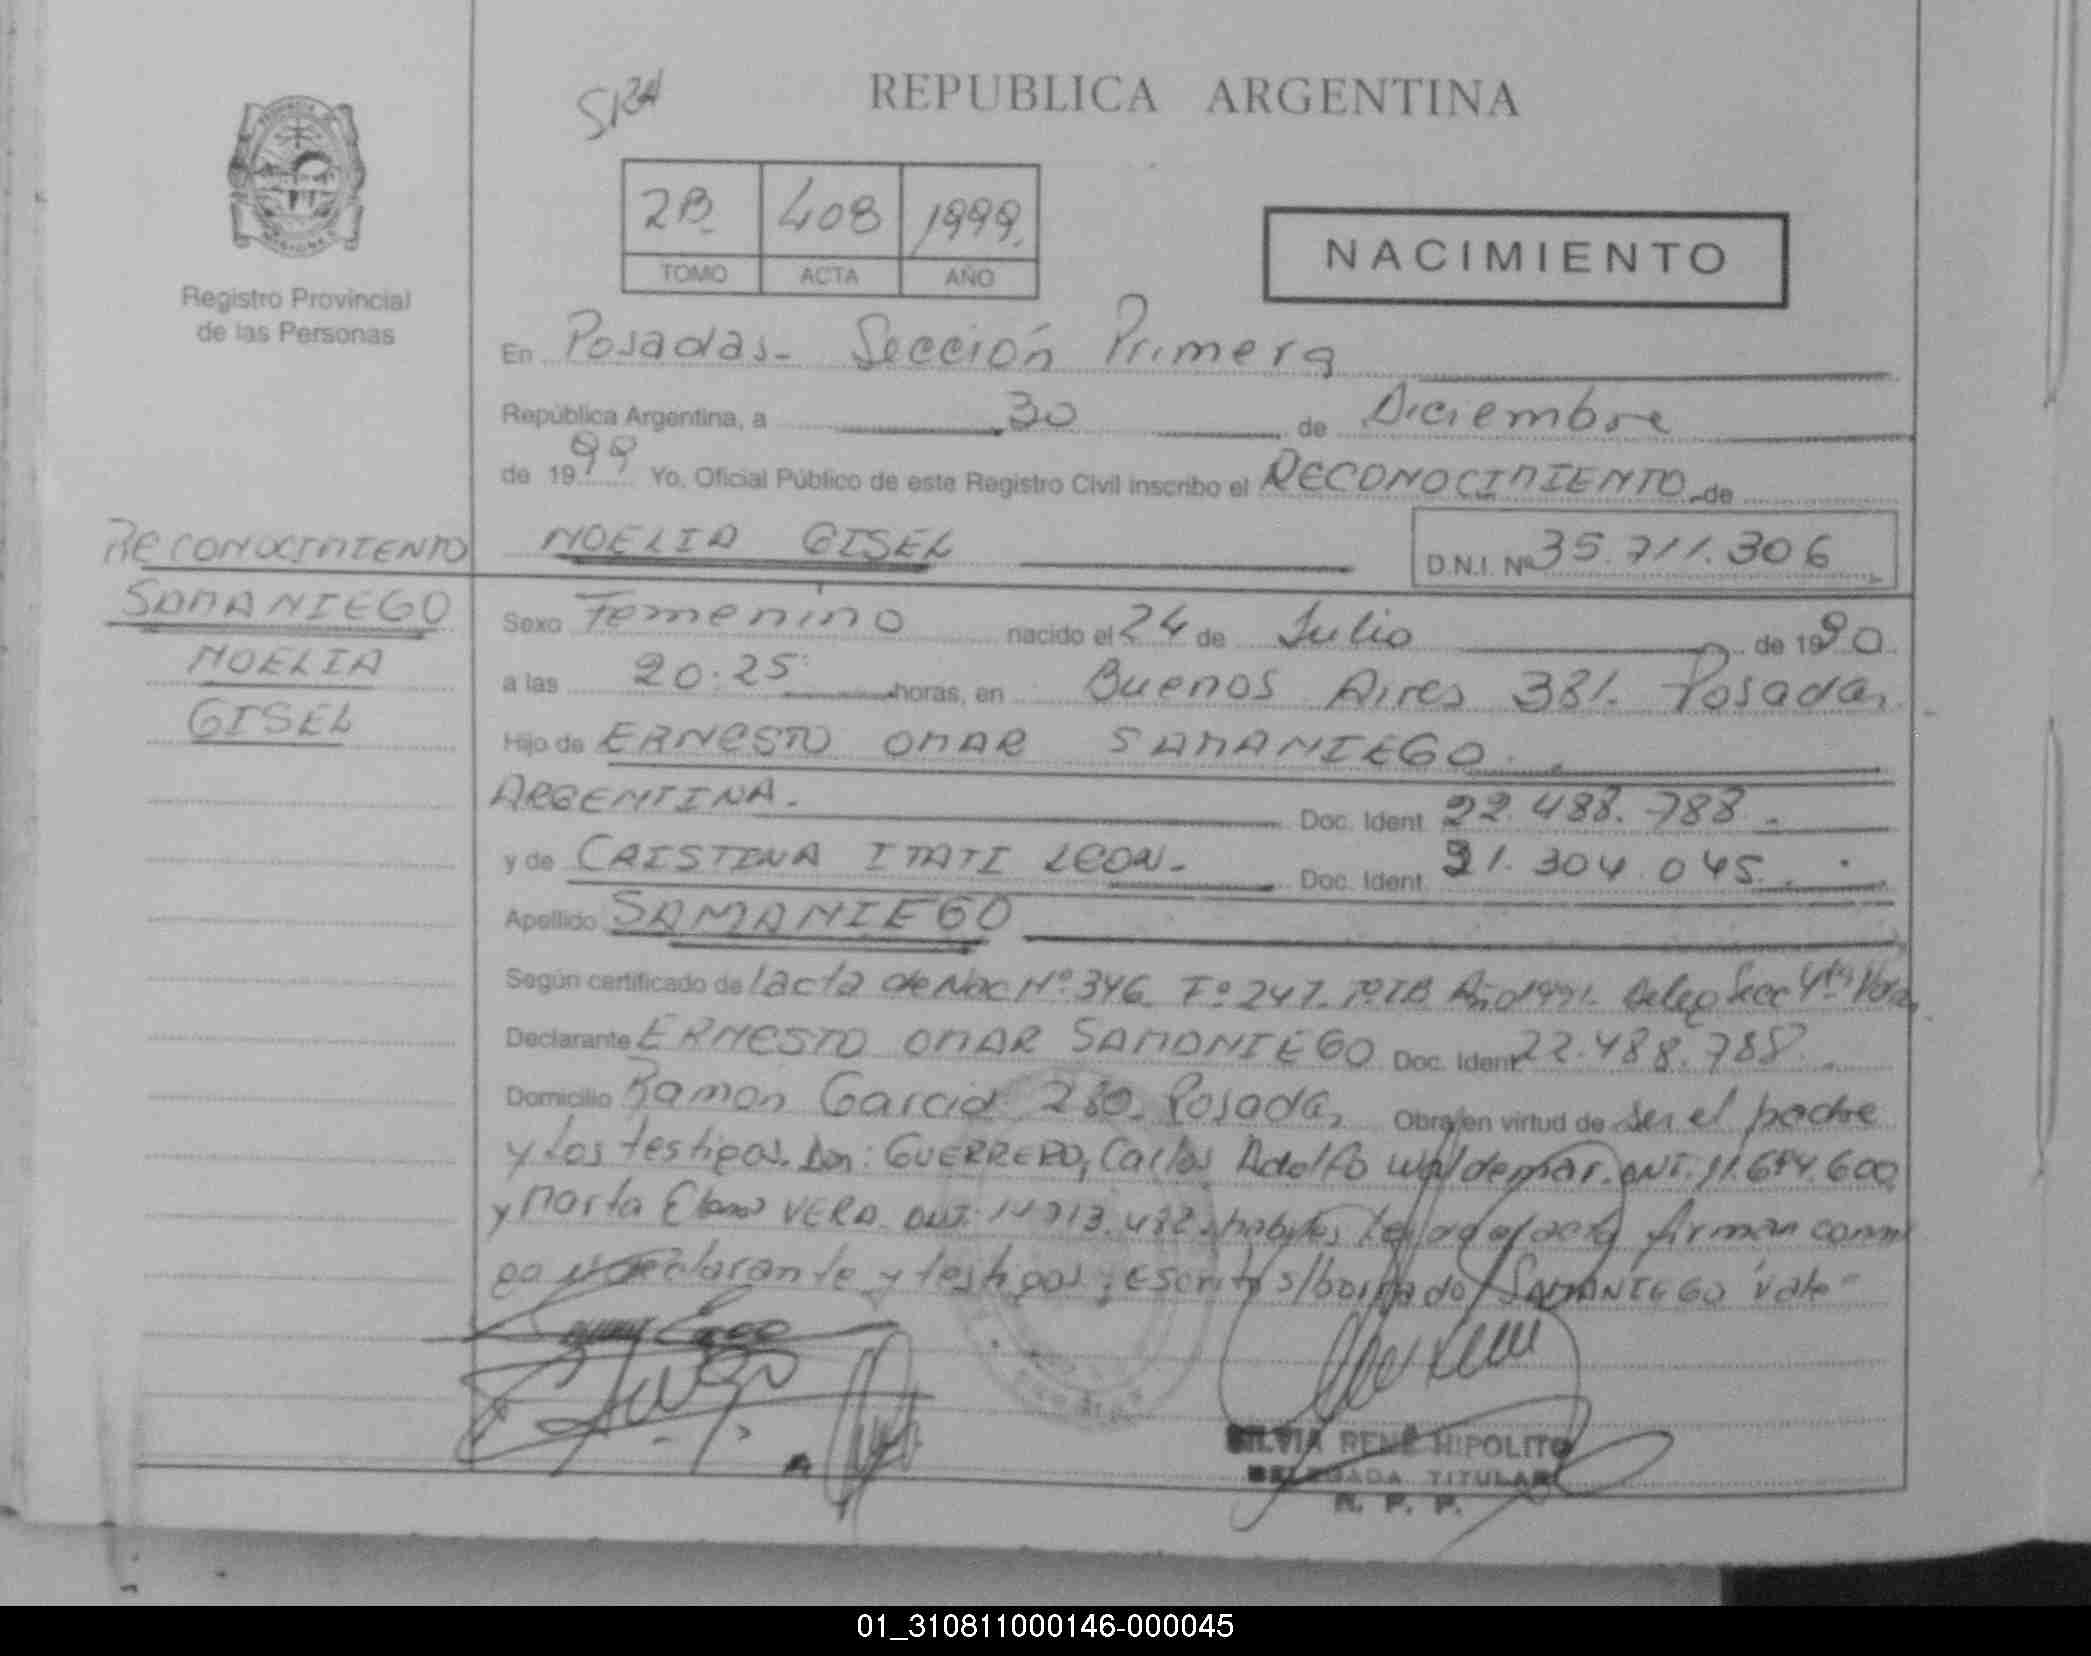 REPUBLICA ARGENTINA
2B 408 1999
TOMO ACTA AÑO
NACIMIENTO
Registro Provincial
de las Personas
En Posadas - Sección Primera
República Argentina, a 30 de Diciembre
de 1999 Yo, Oficial Público de este Registro Civil inscribo el RECONOCIMIENTO de
NOELIA GISEL D.N.I. Nº 35.711.306
RECONOCIMIENTO
SAMANIEGO
NOELIA
GISEL
Sexo Femenino nacido el 24 de Julio de 1990
a las 20:25 horas, en Buenos Aires 331. Posadas
Hijo de ERNESTO OMAR SAMANIEGO.
ARGENTINA. Doc. Ident. 22.488.788.
y de CRISTINA ITATI LEON. Doc. Ident. 21.304.045.
Apellido SAMANIEGO
Según certificado de acta de Nac Nº 346 Fº 247 Año 1991 Deleg Secc 4ta
Declarante ERNESTO OMAR SAMANIEGO Doc. Ident 22.488.788.
Domicilio Ramon Garcia 280. Posadas Obra en virtud de ser el padre
y los testigos. Don: GUERRERO, Carlos Adolfo Waldemar. DNI.
y Marta VERA DNI. firman conmi
go declarante y testigos; Escrito s/borrado SAMANIEGO vale
SILVIA RENE HIPOLITO
DELEGADA TITULAR
R. P. P.
01_310811000146-000045